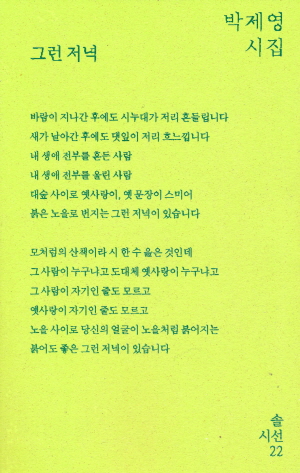 박제영
시집
그런 저녁
바람이 지나간 후에도 시누대가 저리 흔들립니다
새가 날아간 후에도 댓잎이 저리 흐느낍니다
내 생애 전부를 흔든 사람
내 생애 전부를 울린 사람
대숲 사이로 옛사랑이, 옛 문장이 스미어
붉은 노을로 번지는 그런 저녁이 있습니다
모처럼의 산책이라 시 한 수 읊은 것인데
그 사람이 누구냐고 도대체 옛사랑이 누구냐고
그 사람이 자기인 줄도 모르고
옛사랑이 자기인 줄도 모르고
노을 사이로 당신의 얼굴이 노을처럼 붉어지는
붉어도 좋은 그런 저녁이 있습니다
솔
시선
22